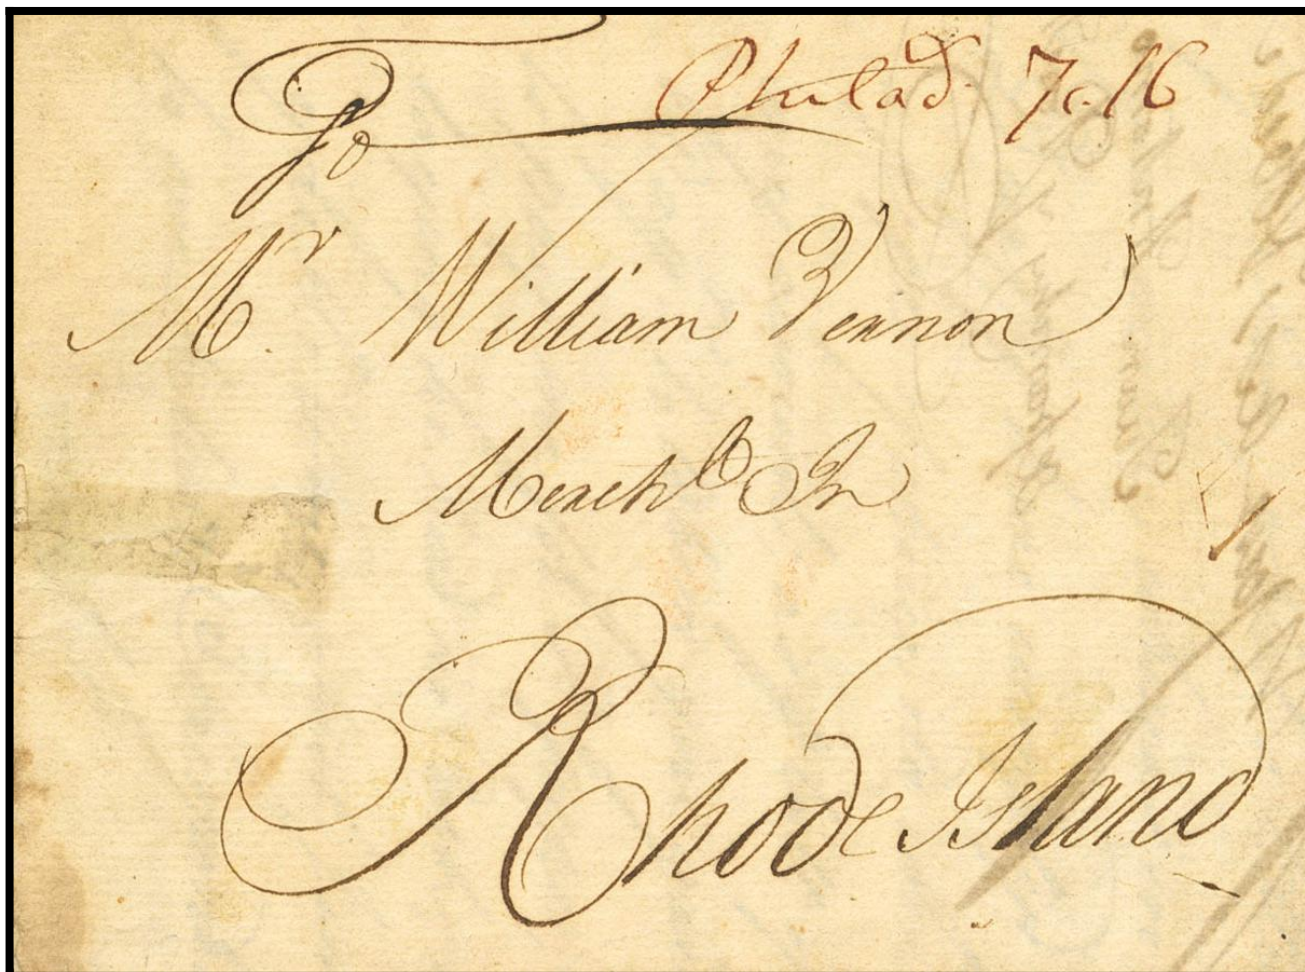 Philad. 7c. 16
To
Mr. William Vernon
Mercht. In
Rhode Island